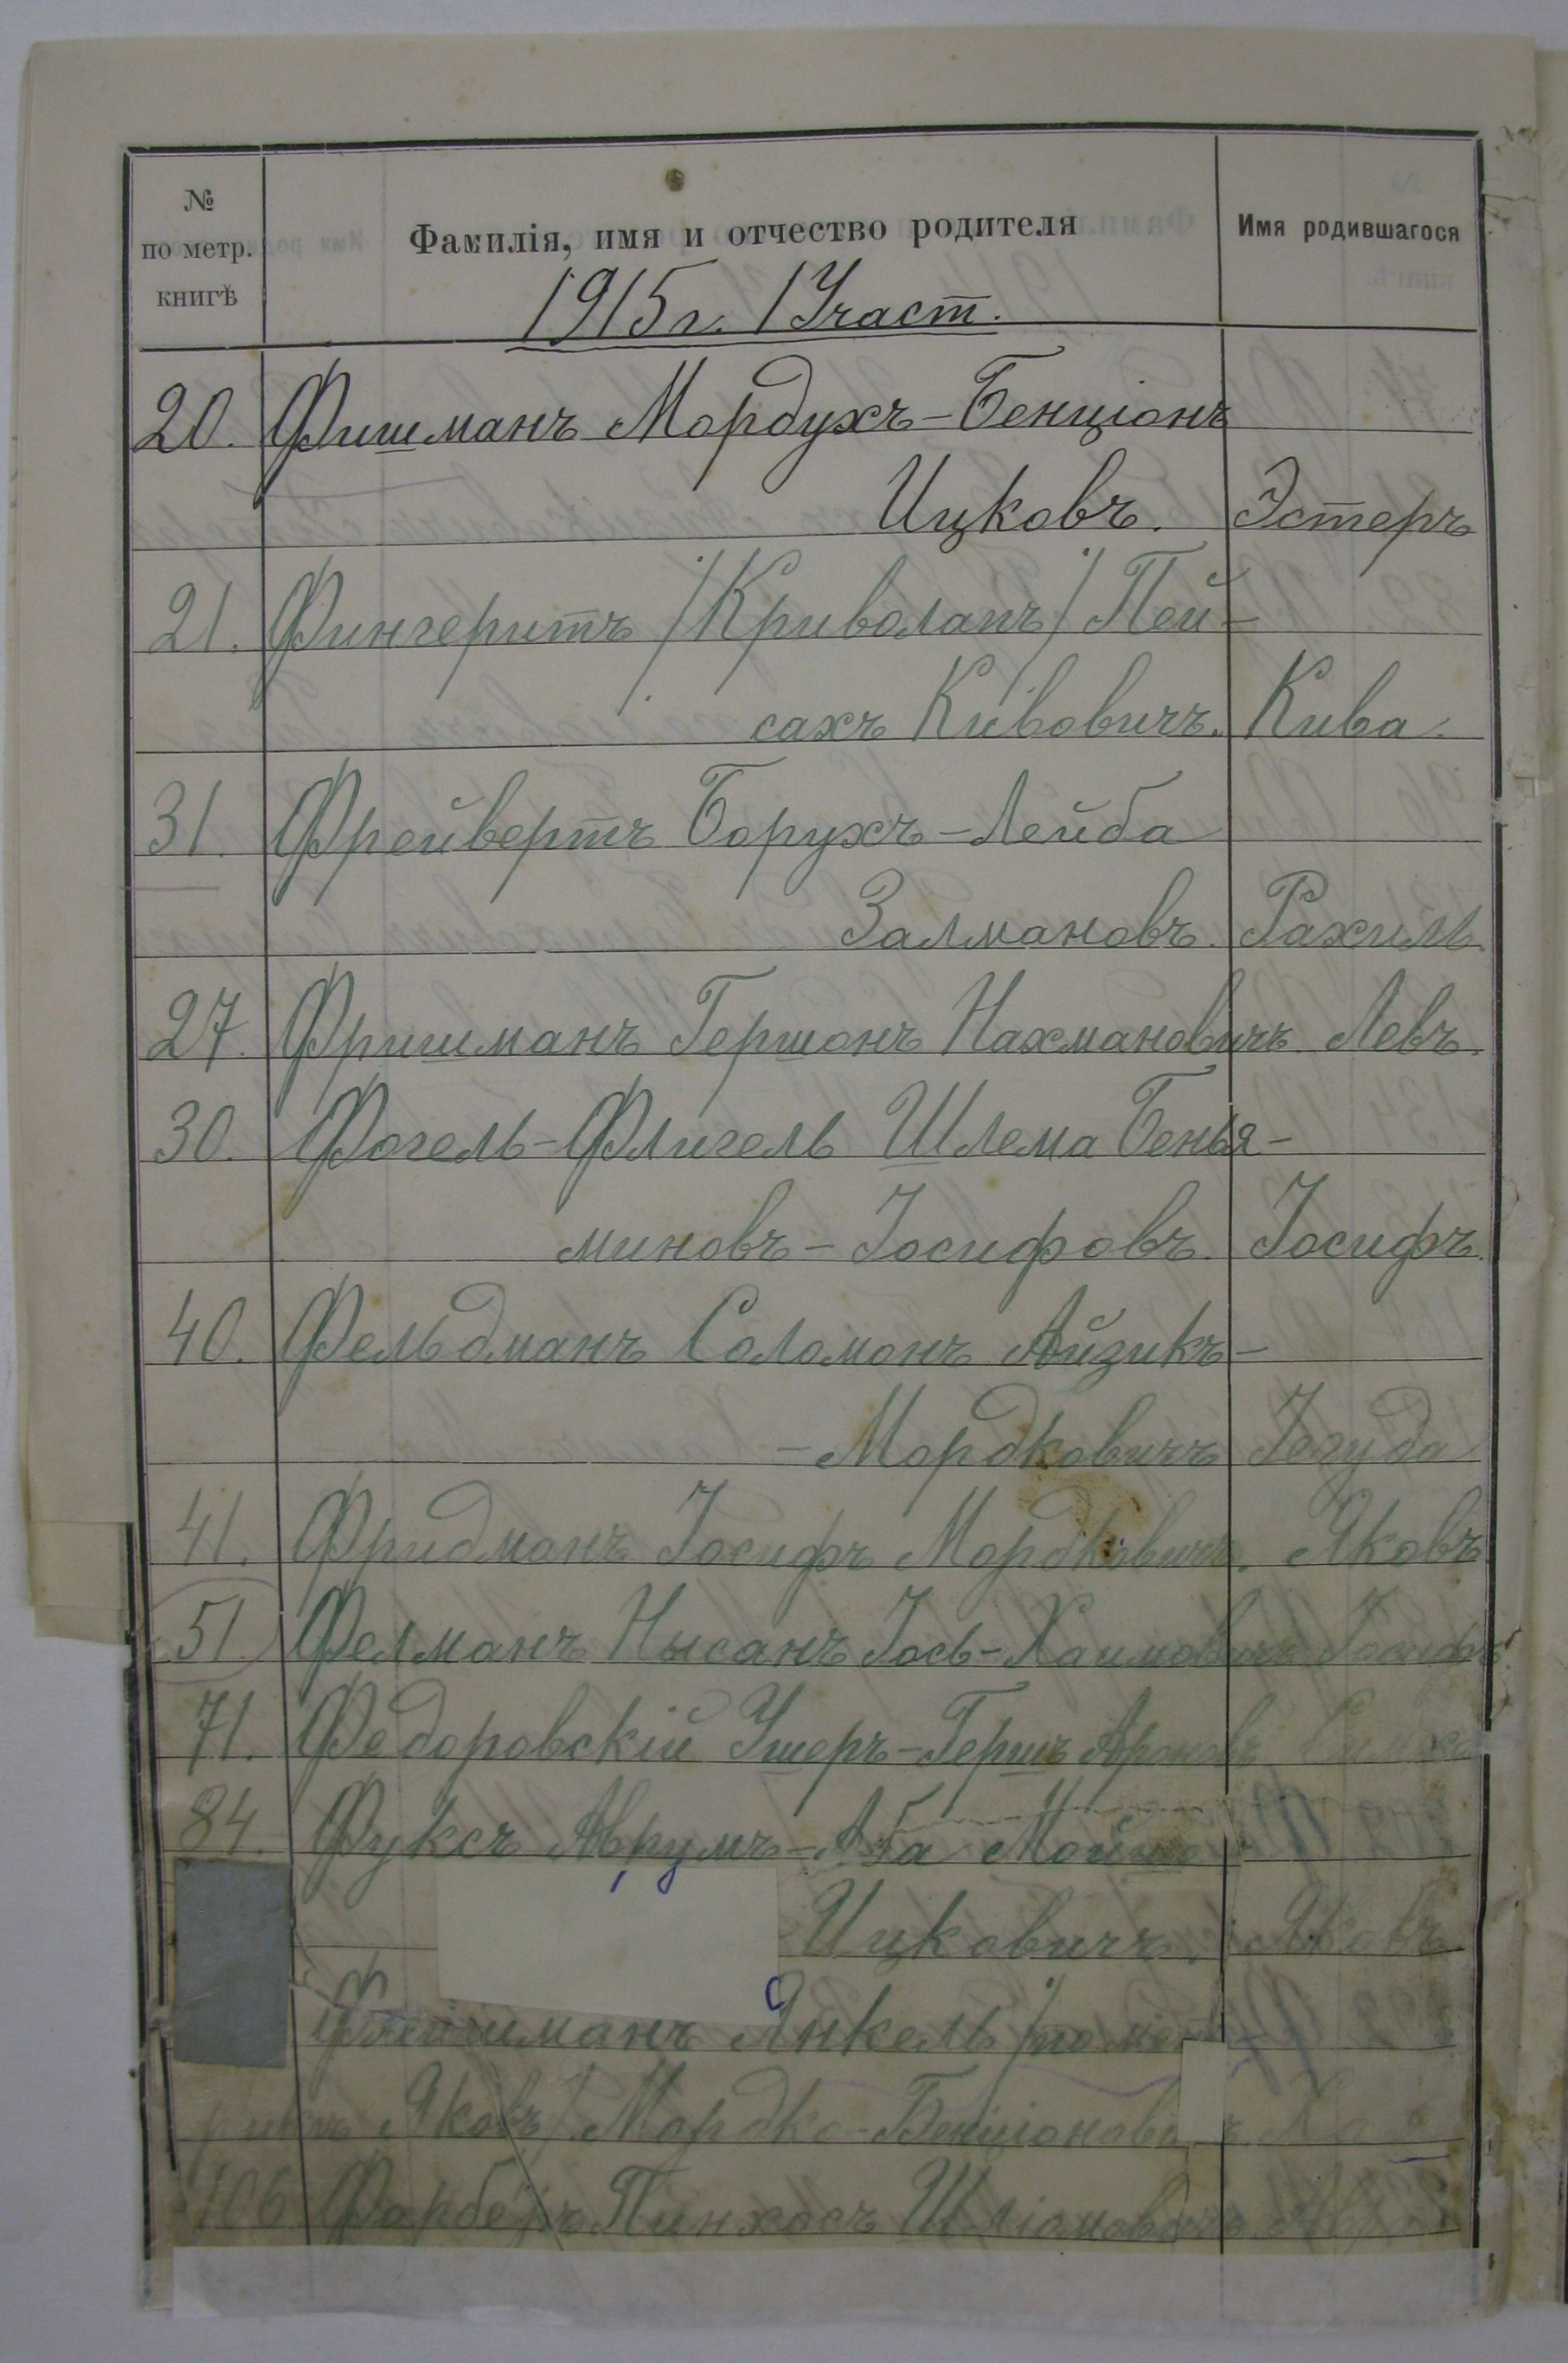 № по метр. книгѣ Фамилія, имя и отчество родителя Имя родившагося
1915 г. 1 Участ.
20. Фишманъ Мордухъ-Бенціонъ
Ицковъ. Эстеръ
21. Фингеритъ /Криволапъ/ Пей-
сахъ Кивовичъ. Кива.
31. Фрейвертъ Борухъ-Лейба
Залмановъ. Рахиль.
27. Фришманъ Гершонъ Нахмановичъ. Левъ.
30. Фогель-Флигель Шлема Бенья-
миновъ-Іосифовъ. Іосифъ.
40. Фельдманъ Соломонъ Айзикъ-
-Мордковичъ Іегуда
41. Фридманъ Іосифъ Мордковичъ. Яковъ
51. Фелманъ Нысанъ Іось-Хаимовичъ Іосифъ
71. Федоровскій Ушеръ-Гершъ Ароновъ
84. Фуксъ Аврумъ-Аба Мойше
Ицковичъ. Яковъ
Флейшманъ Янкель /по мет
рикѣ Яковъ/ Мордко-Бенціонови
106 Фарберъ Пинхосъ Шліомовичъ